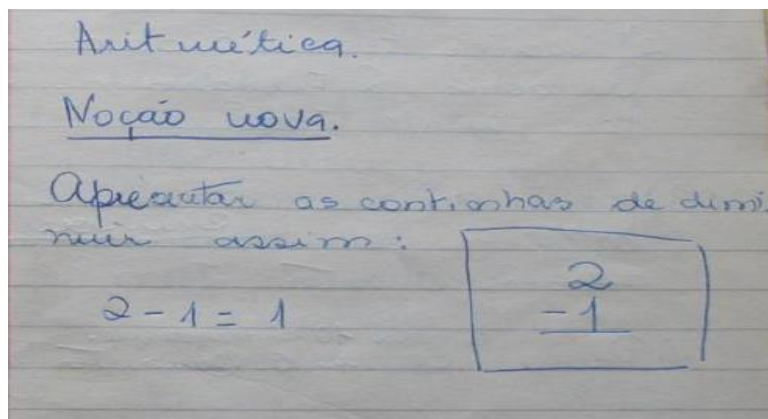 Aritmética.
Noção nova.
Apresentar as continhas de dimi.
nuir assim:
2 - 1 = 1
2
- 1